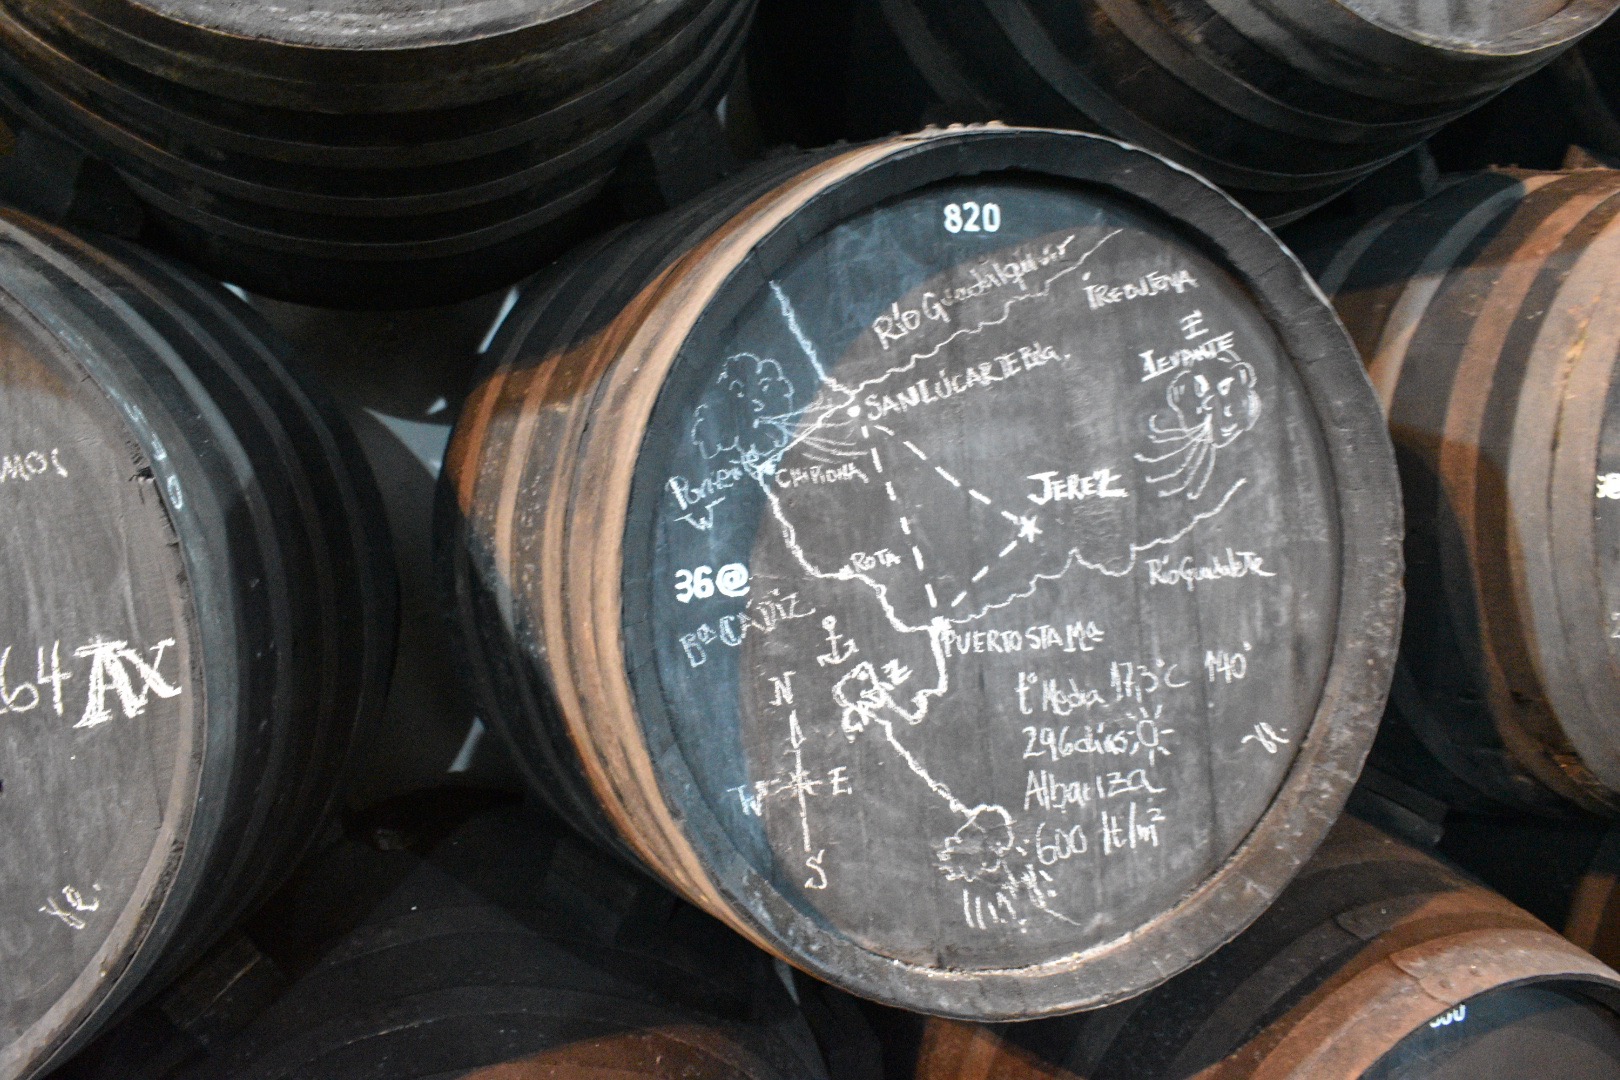 820
Río Guadalquivir
TREBUJENA
E
LEVANTE
SANLÚCAR DE Bda.
Poniente
W
CHIPIONA
JEREZ
ROTA
Río Guadalete
36@
Bª CÁDIZ
PUERTO STA Mª
CADIZ
N
W E
S
tº Media 17,3°C 140°
296 días
Albariza
600 lt/m²
64